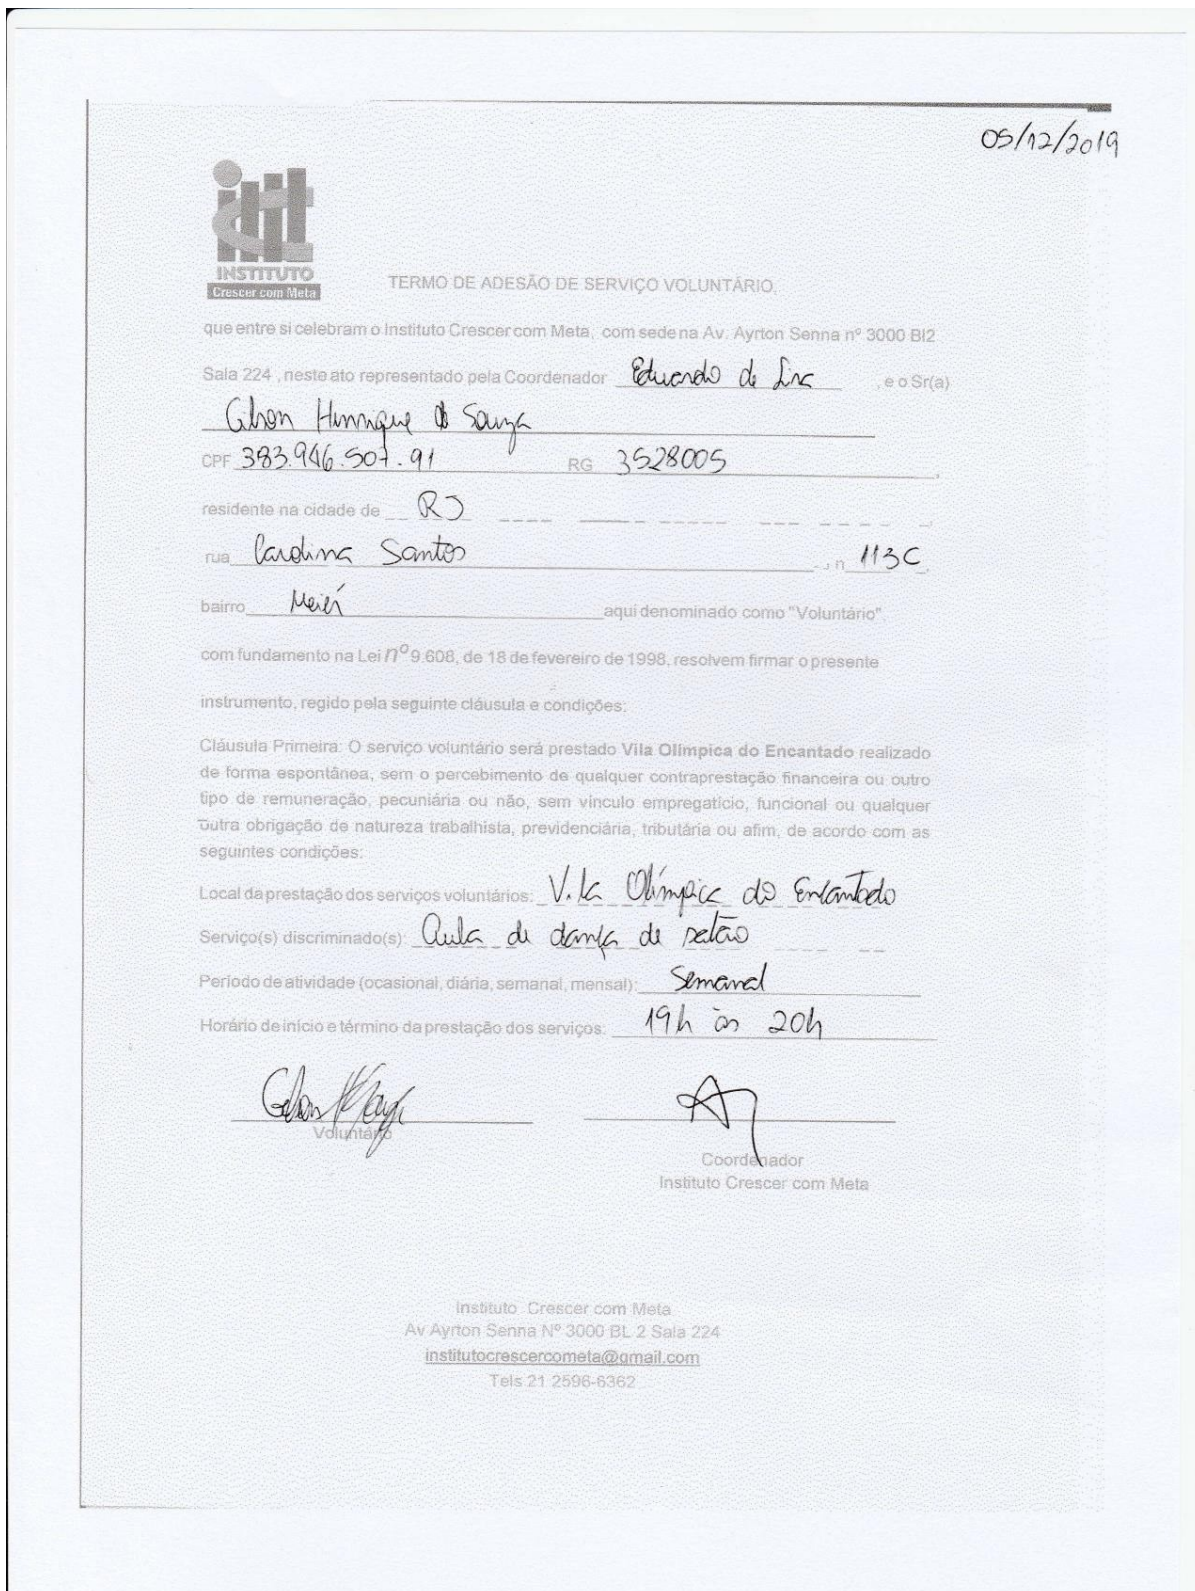 05/12/2019
INSTITUTO
Crescer com Meta
TERMO DE ADESÃO DE SERVIÇO VOLUNTÁRIO,
que entre si celebram o Instituto Crescer com Meta, com sede na Av. Ayrton Senna nº 3000 Bl2
Sala 224 , neste ato representado pela Coordenador Eduardo de , e o Sr(a)
Henrique de Souza
CPF 383.946.507.91 RG 3528005 ,
residente na cidade de RJ
rua Carolina Santos , n 113C
bairro Meiér aqui denominado como "Voluntário",
com fundamento na Lei nº 9.608, de 18 de fevereiro de 1998, resolvem firmar o presente
instrumento, regido pela seguinte cláusula e condições:
Cláusula Primeira: O serviço voluntário será prestado Vila Olímpica do Encantado realizado
de forma espontânea, sem o percebimento de qualquer contraprestação financeira ou outro
tipo de remuneração, pecuniária ou não, sem vínculo empregatício, funcional ou qualquer
outra obrigação de natureza trabalhista, previdenciária, tributária ou afim, de acordo com as
seguintes condições:
Local da prestação dos serviços voluntários: Vila Olímpica do Encantado
Serviço(s) discriminado(s): Aula de dança de salão
Período de atividade (ocasional, diária, semanal, mensal): Semanal
Horário de início e término da prestação dos serviços: 19h às 20h
Voluntário
Coordenador
Instituto Crescer com Meta
Instituto Crescer com Meta
Av Ayrton Senna Nº 3000 BL 2 Sala 224
institutocrescercometa@gmail.com
Tels 21 2596-6362